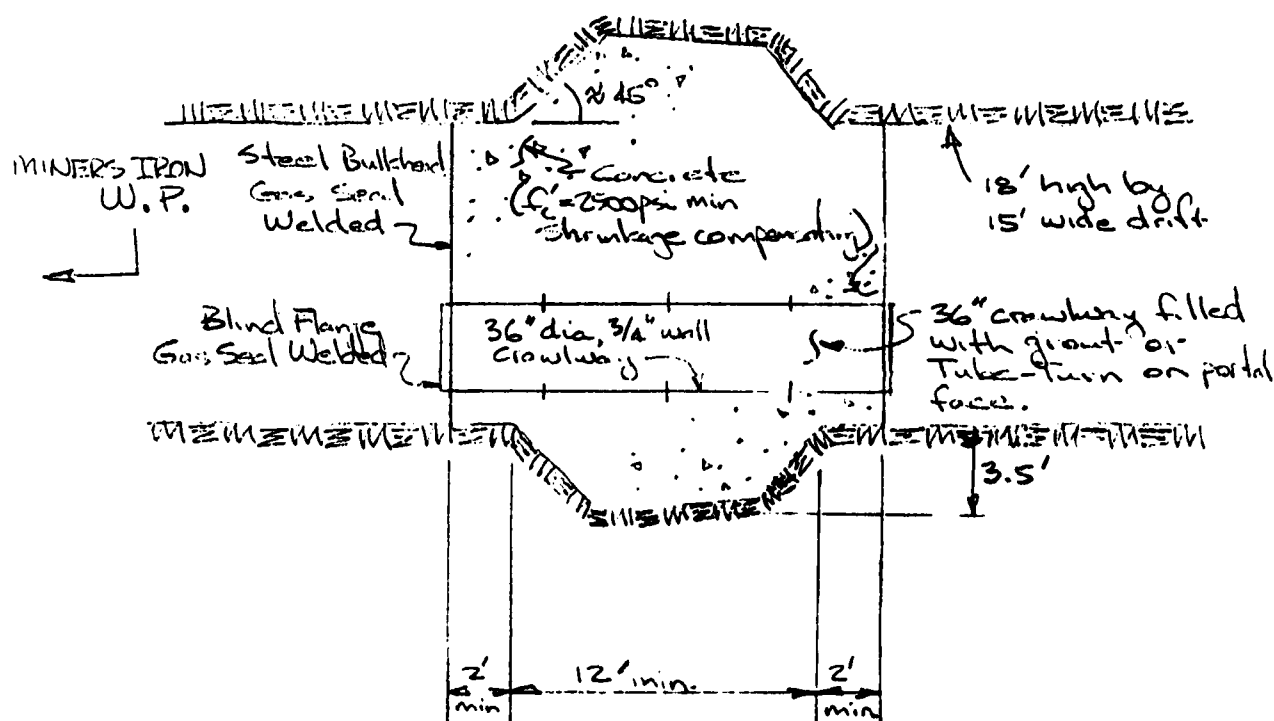 ≈ 45°
MINERS IRON
W.P.
Steel Bulkhead
Gas Seal
Welded
Concrete
(f'c = 2500 psi min
Shrinkage compensating)
18' high by
15' wide drift
Blind Flange
Gas Seal Welded
36" dia, 3/4" wall
crawlway
36" crawlway filled
with grout or
Tube-Turn on portal
face.
3.5'
2'
min
12' min.
2'
min